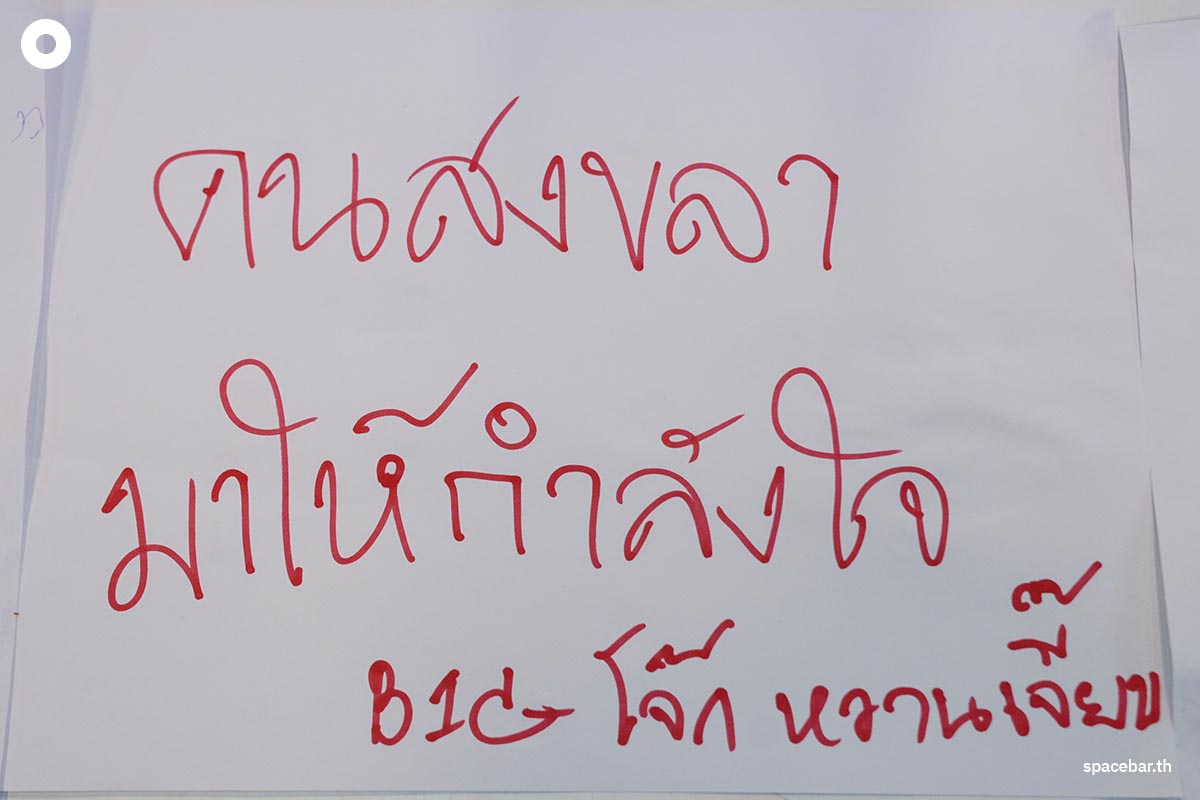 คนสงขลา
มาให้กำลังใจ
B1G โจ๊ก หวานเจี๊ยบ
spacebar.th